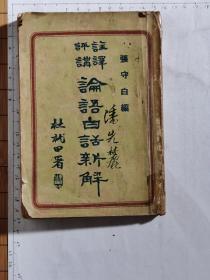 張守白編
註譯
評講
論語白話新解
杜就田署